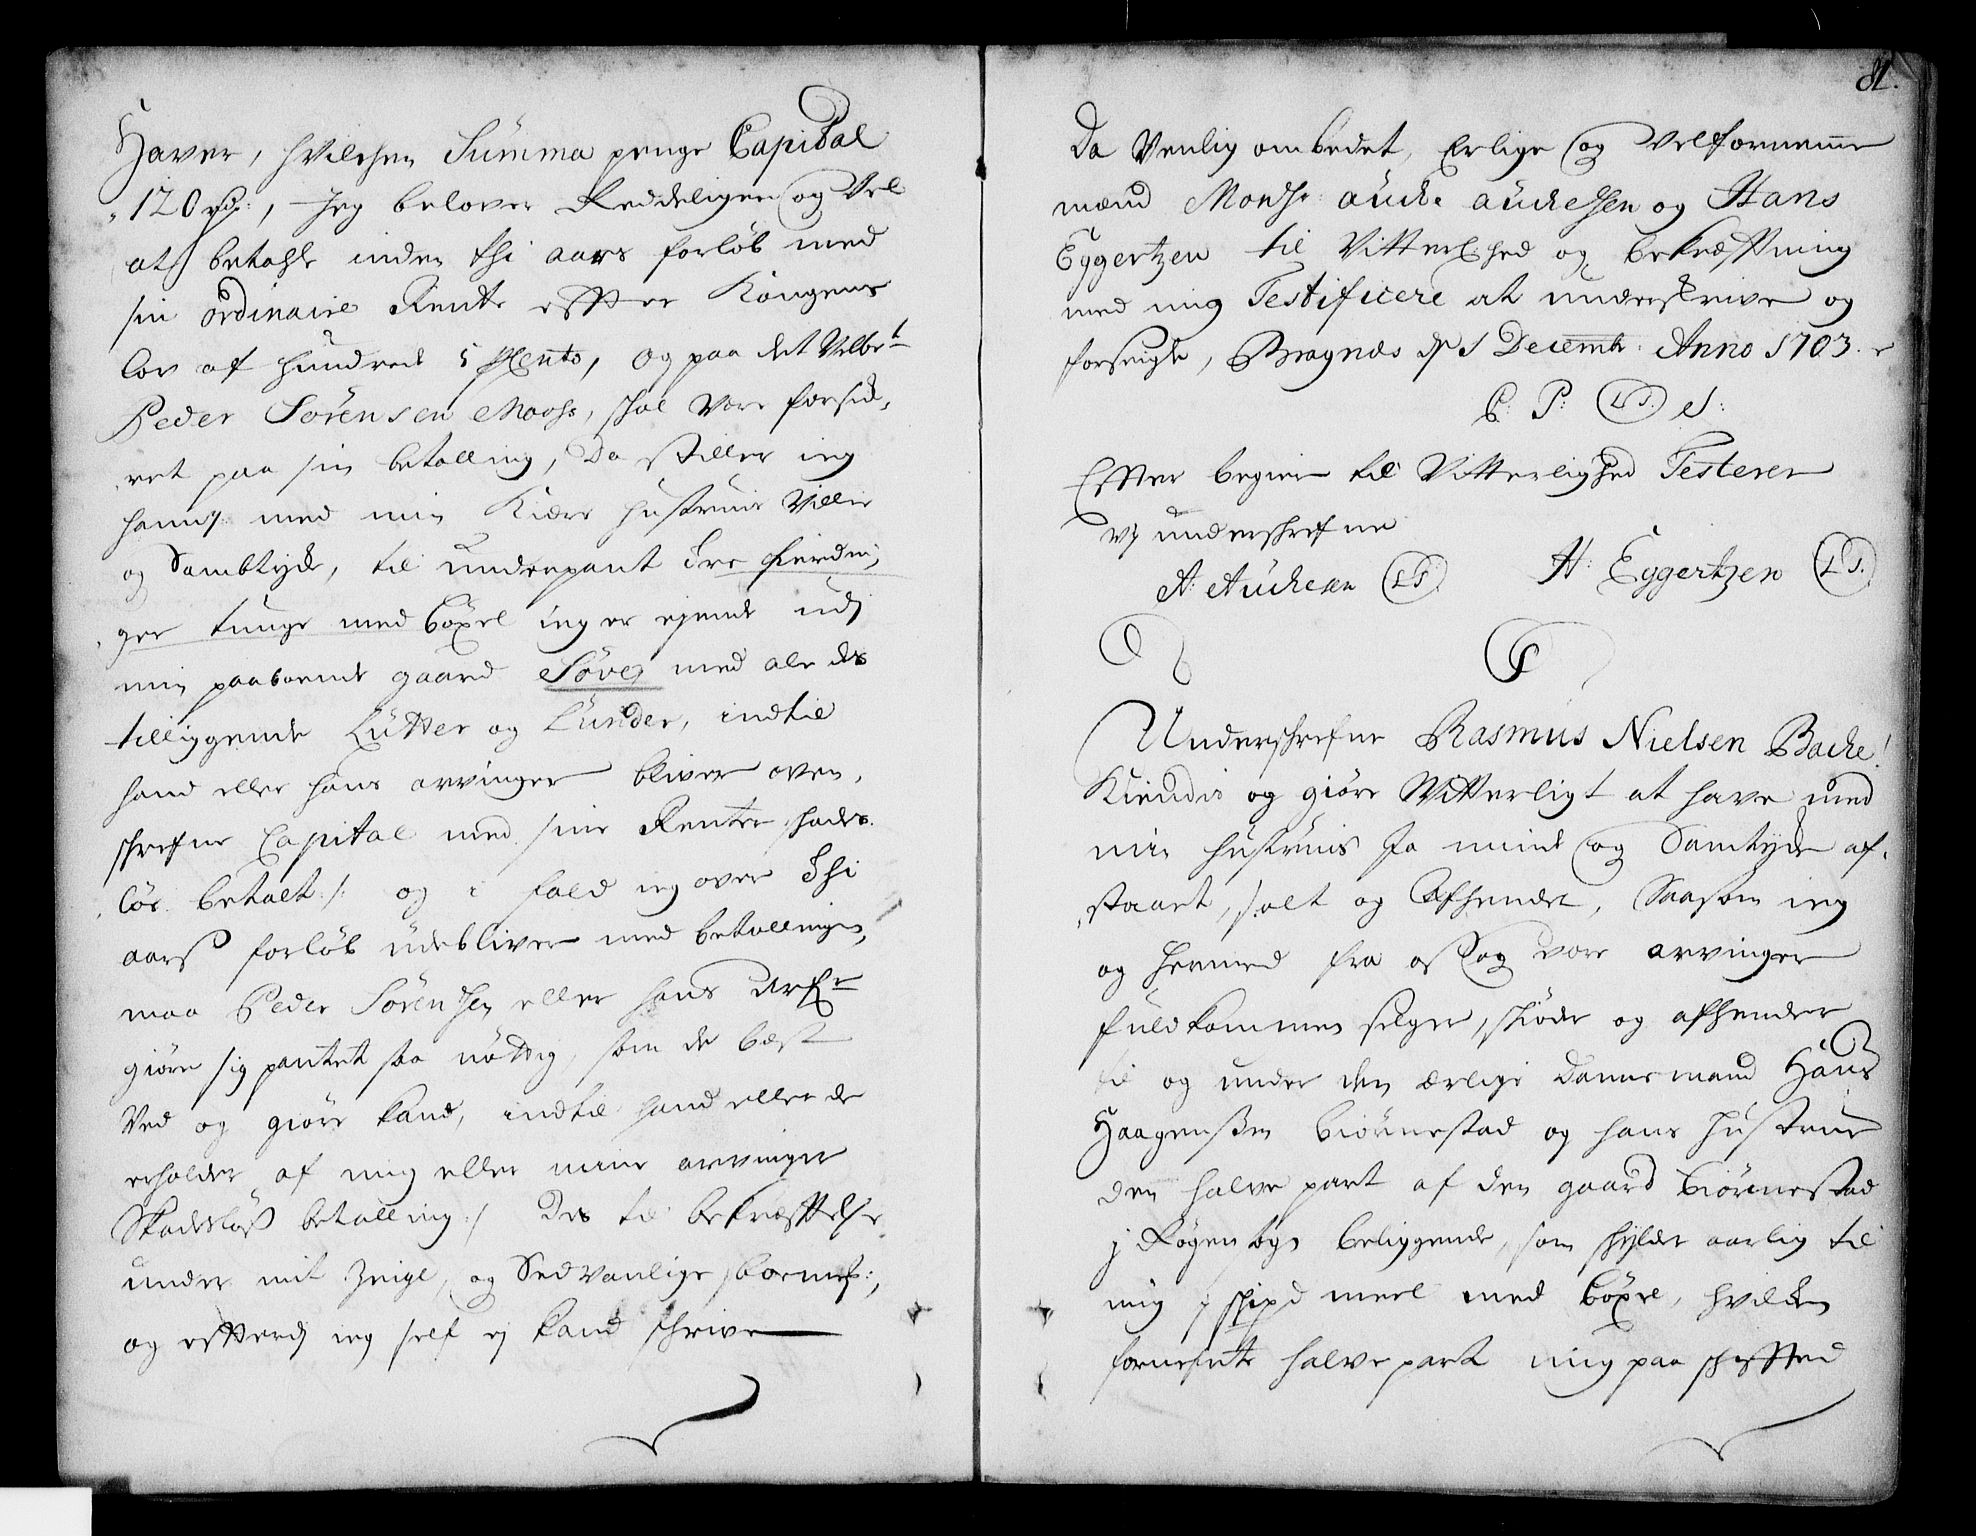 Haver, hvilchen Summa penge Capital
120 rdr:, Jeg belover Reddeligen og Vel
at betahle inden thi aars forløb med
sin ordinaire Rente effter Kongens
lov af hundrede 5 pCento, og paa det Velbte
Peder Sörensen Moohs, schal være forsich,
ret paa sin betalling, Da stiller ieg
hannem med min Kiære hustrues Villie
og Sambtyche, til underpant Tre fierdin,
ger tunge med böxel ieg er ejende udj
min paaboende gaard Söve med ale des
tilliggende Lutter og Lunder, indtil
hand eller hans arvinger bliver oven,
schrefne Capital med sine Renter skades
løs betalt ./. og i fald ieg over Thi
aars forløb udebliver med betallingen,
maa Peder Sörenssen eller hans Arf:r
giøre sig pantet saa nøttig, som de best
Ved og giøre kand, indtil hand eller de
erholder af mig eller mine arvinger
Skadesløß betalling ./ Des til bekræfftelse
under mit Zeigl, og Sedvanlige bornef:,
og efftterdj ieg self ej kand schrive
81.
Da Venlig ombedet, Erlige og Velfornemme
mænd Monsr: Aucke Auckesen og Hans
Eggertzen til Vitterl:hed og bekræfftning
med mig Testificere at underskrive og
forseigle, Bragnæs d: 1 Decembr: Anno 1703.
C: P: (LS.) S:
Effter begier til Vitterlighed Testerer
vj underschrefne
A: Auckesen (LS) H: Eggertzen (LS.)
Underschrefne Rasmus Nielsen Backe!
Kiendis og giøre Witterligt at have med
min hustrues Ja minde og Samtyche af,
staaet, solt og Afhendet, Saasom ieg
og hermed fra oß og vore arvinger
fuldkommen selger, skiøder og afhender
til og under den ærlige Dannemand Hans
Haagenssen biörnestad og hans hustrue
den halve part af den gaard biörnestad
j Røgen sogn beliggende, som schylder aarlig til
mig 1 schip:d meel med böxel, hvilchen
fornefnte halve part mig paa schifftted